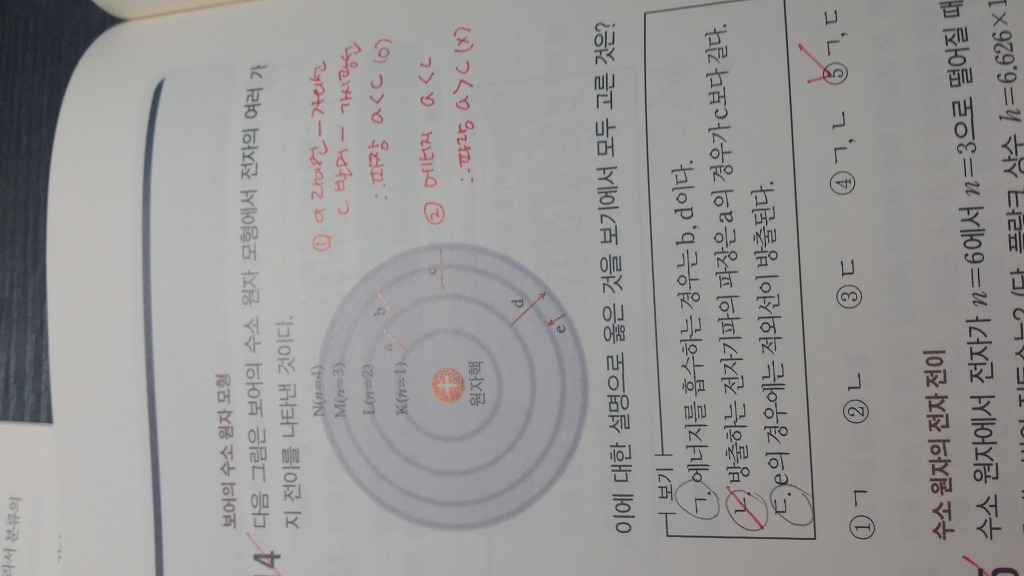 보어의 수소 원자 모형
14 다음 그림은 보어의 수소 원자 모형에서 전자의 여러 가
지 전이를 나타낸 것이다.
N(n=4)
M(n=3)
L(n=2)
K(n=1)
a
b
c
d
e
원자핵
① a 라이먼 -
c 발머 - 가시광선
∴파장 a<c (O)
② 에너지 a<c
∴파장 a>c (X)
이에 대한 설명으로 옳은 것을 보기에서 모두 고른 것은?
보기
ㄱ. 에너지를 흡수하는 경우는 b, d이다.
ㄴ. 방출하는 전자기파의 파장은 a의 경우가 c보다 길다.
ㄷ. e의 경우에는 적외선이 방출된다.
① ㄱ ② ㄴ ③ ㄷ ④ ㄱ, ㄴ ⑤ ㄱ, ㄷ
수소 원자의 전자 전이
수소 원자에서 전자가 n=6에서 n=3으로 떨어질 때
(단, 플랑크 상수 h=6.626×1